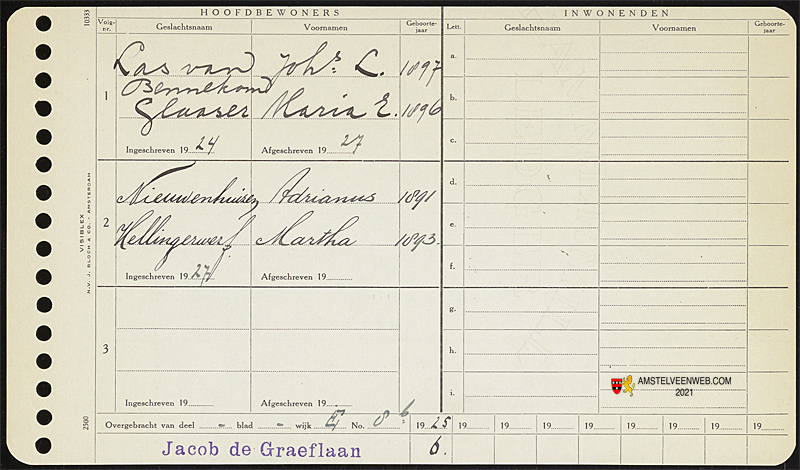 HOOFDBEWONERS INWONENDEN
Volg-nr. Geslachtsnaam Voornamen Geboorte-jaar Lett. Geslachtsnaam Voornamen Geboorte-jaar
10333
1 Las van Johs. L. 1897
Bennekom
Glaaser Maria E. 1896
Ingeschreven 1924 Afgeschreven 1927
2 Nieuwenhuizen Adrianus 1891
Hellingerwerf Martha 1893.
Ingeschreven 1927 Afgeschreven 19
3
Ingeschreven 19 Afgeschreven 19
a.
b.
c.
d.
e.
f.
g.
h.
i.
VISIBLEX
N.V. J. BLOCH & CO. - AMSTERDAM
2500
Overgebracht van deel - blad - wijk No. 8 b 1925 19 19 19 19 19 19 19 19
Jacob de Graeflaan 6.
AMSTELVEENWEB.COM
2021